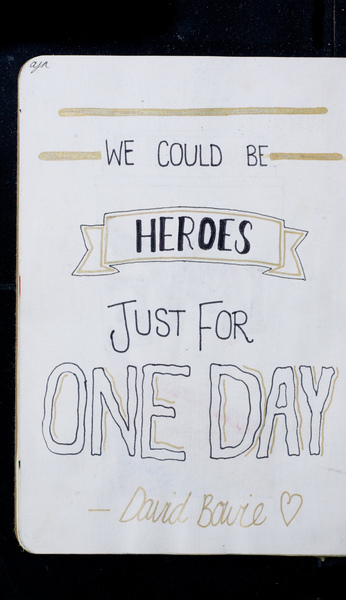 ajn
WE COULD BE
HEROES
JUST FOR
ONE DAY
— David Bowie ♡